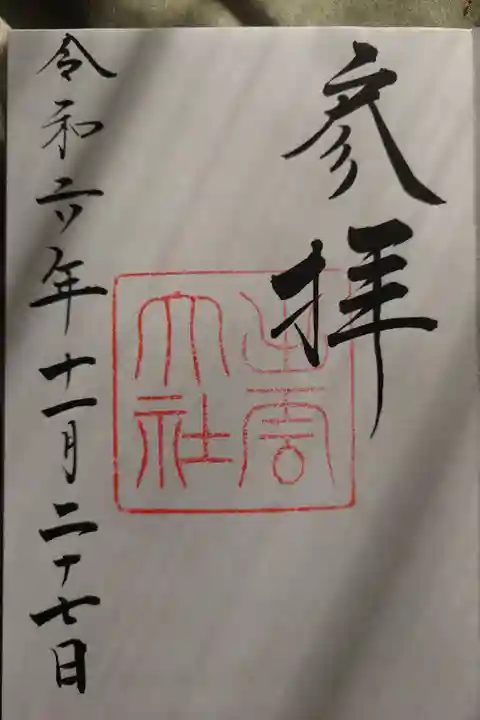 参拝
出雲
大社
令和六年十一月二十七日